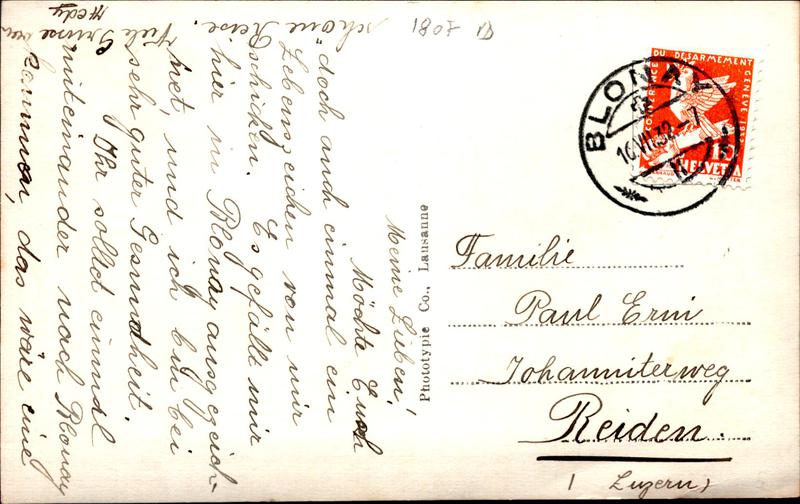 Meine Lieben!
Möchte Euch
"doch auch einmal ein
Lebenszeichen von mir
schicken. Es gefällt mir
hier in Blonay ausgezeich-
net, und ich bin bei
sehr guter Gesundheit.
Ihr solltet einmal
miteinander nach Blonay
kommen, das wäre eine
schöne Reise.
Viele Grüsse von
Hedy
1807
Phototypie Co., Lausanne
BLONAY
16.VII.32-7
CONFERENCE DU DESARMEMENT GENEVE 1932
10
HELVETIA
Familie
Paul Erni
Johanniterweg
Reiden.
(Luzern)